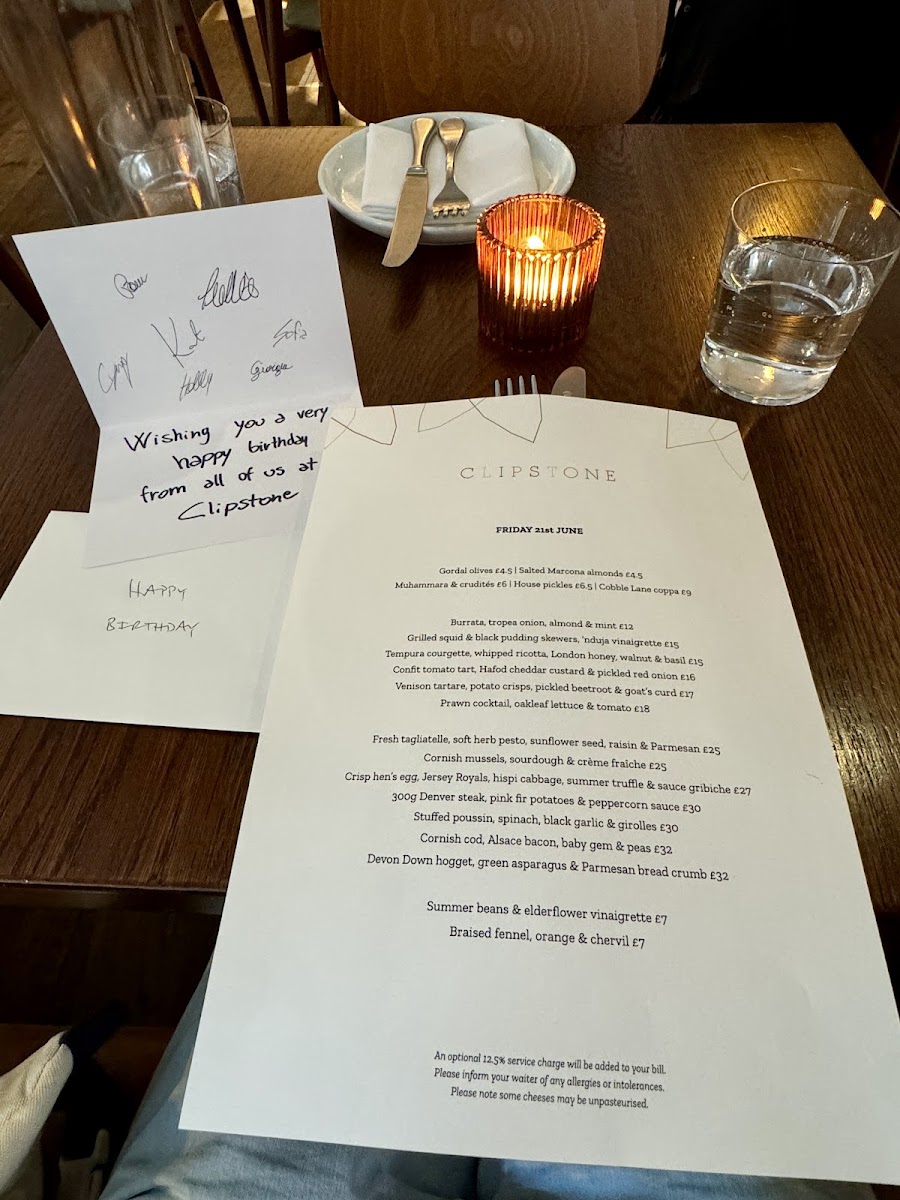 Kat
Sofia
Holly
Georgia
Wishing you a very
happy birthday
from all of us at
Clipstone
HAPPY
BIRTHDAY
CLIPSTONE
FRIDAY 21st JUNE
Gordal olives £4.5 | Salted Marcona almonds £4.5
Muhammara & crudités £6 | House pickles £6.5 | Cobble Lane coppa £9
Burrata, tropea onion, almond & mint £12
Grilled squid & black pudding skewers, 'nduja vinaigrette £15
Tempura courgette, whipped ricotta, London honey, walnut & basil £15
Confit tomato tart, Hafod cheddar custard & pickled red onion £16
Venison tartare, potato crisps, pickled beetroot & goat's curd £17
Prawn cocktail, oakleaf lettuce & tomato £18
Fresh tagliatelle, soft herb pesto, sunflower seed, raisin & Parmesan £25
Cornish mussels, sourdough & crème fraîche £25
Crisp hen's egg, Jersey Royals, hispi cabbage, summer truffle & sauce gribiche £27
300g Denver steak, pink fir potatoes & peppercorn sauce £30
Stuffed poussin, spinach, black garlic & girolles £30
Cornish cod, Alsace bacon, baby gem & peas £32
Devon Down hogget, green asparagus & Parmesan bread crumb £32
Summer beans & elderflower vinaigrette £7
Braised fennel, orange & chervil £7
An optional 12.5% service charge will be added to your bill.
Please inform your waiter of any allergies or intolerances.
Please note some cheeses may be unpasteurised.